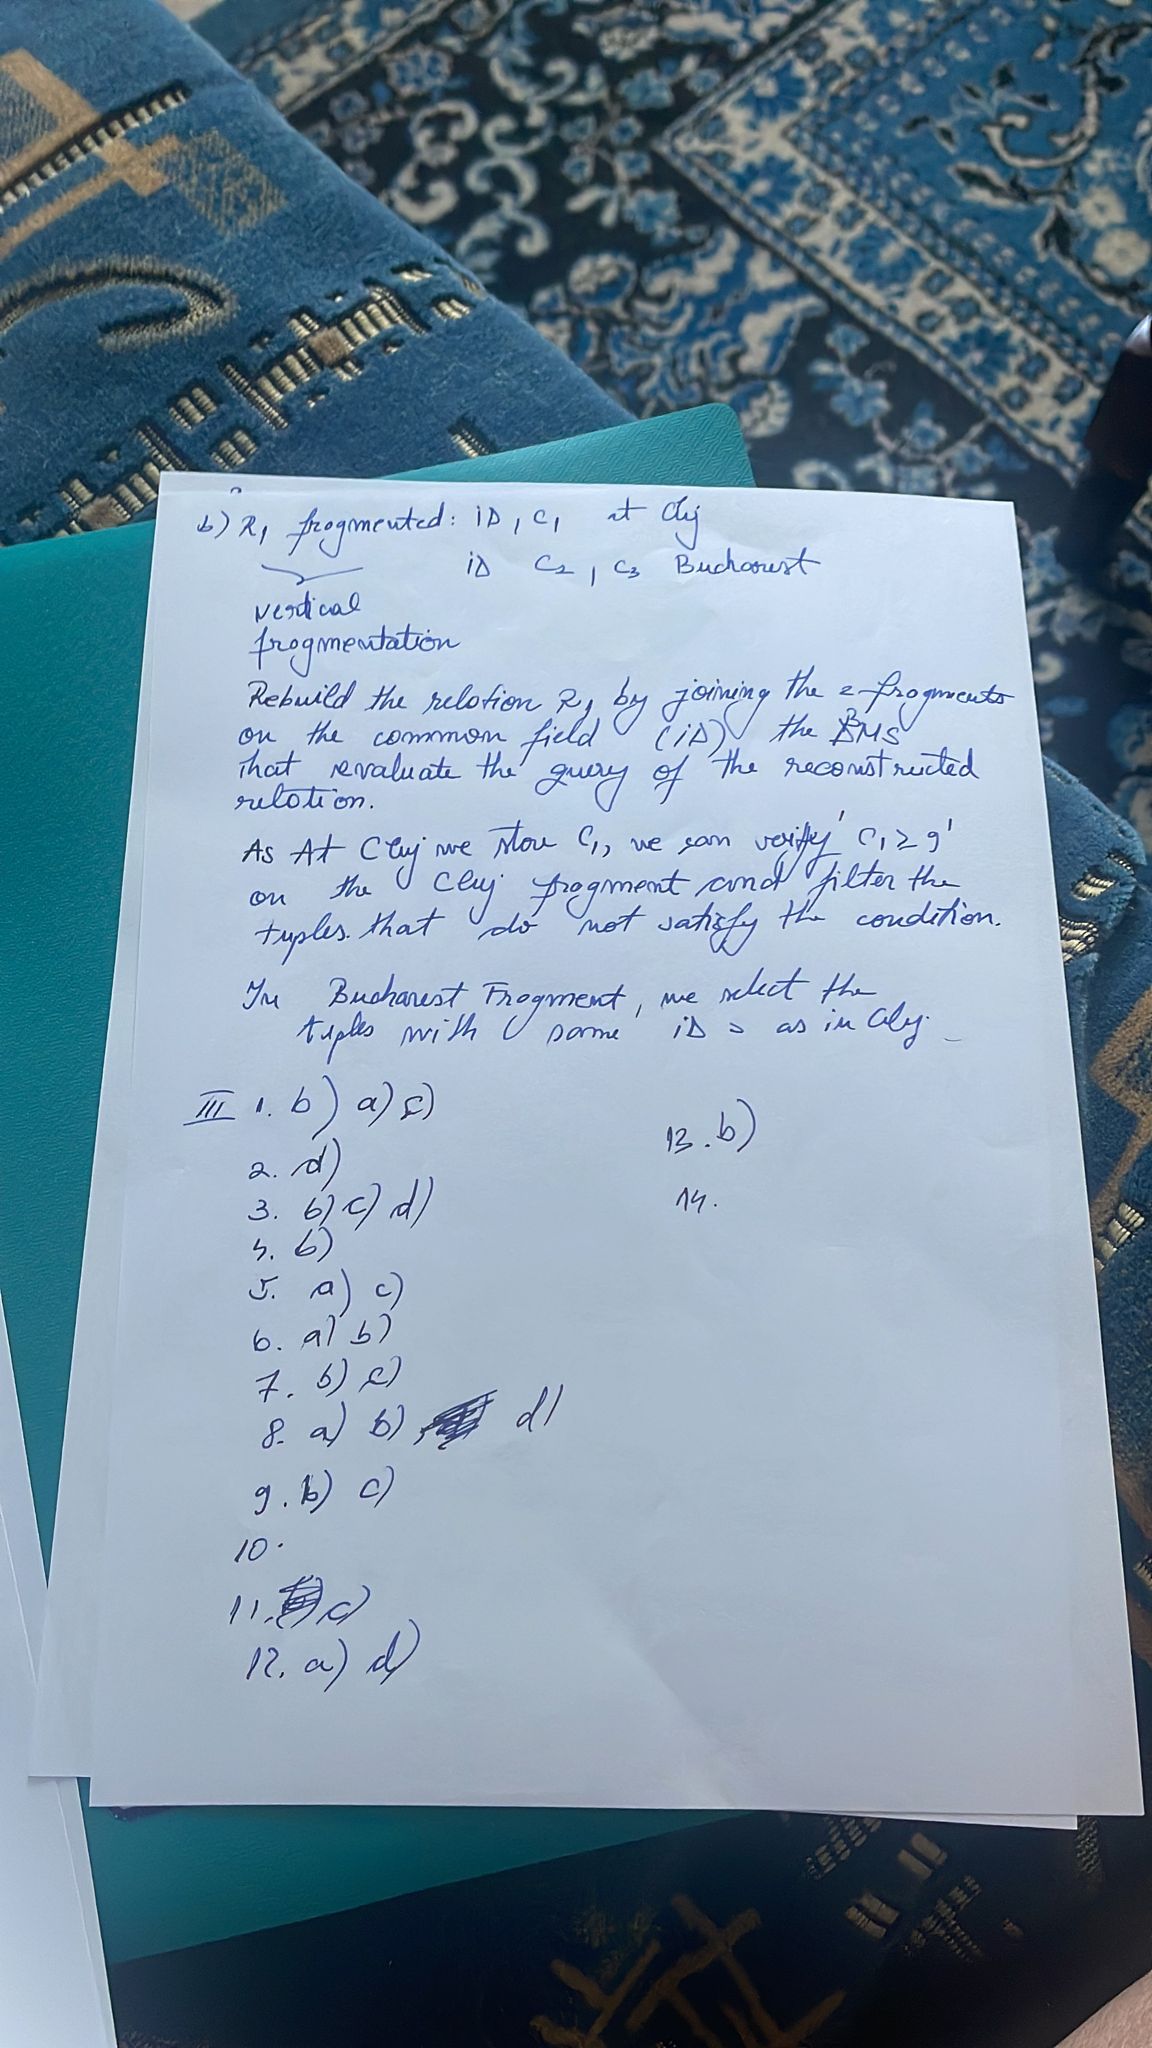 b) R1 fragmented: iD, C1 at Cluj
iD C2, C3 Bucharest
vertical
fragmentation
Rebuild the relation R1 by joining the 2 fragments
on the common field (iD) the DBMS
that evaluate the query of the reconstructed
relation.
As At Cluj we store C1, we can verify 'C1 ≥ 9'
on the Cluj fragment and filter the
tuples that do not satisfy the condition.
In Bucharest Fragment, we select the
tuples with same iD s as in Cluj.
III 1. b) a) c)
2. d)
3. b) c) d)
4. b)
5. a) c)
6. a) b)
7. b) c)
8. a) b), d)
9. b) c)
10.
11. c)
12. a) d)
13. b)
14.